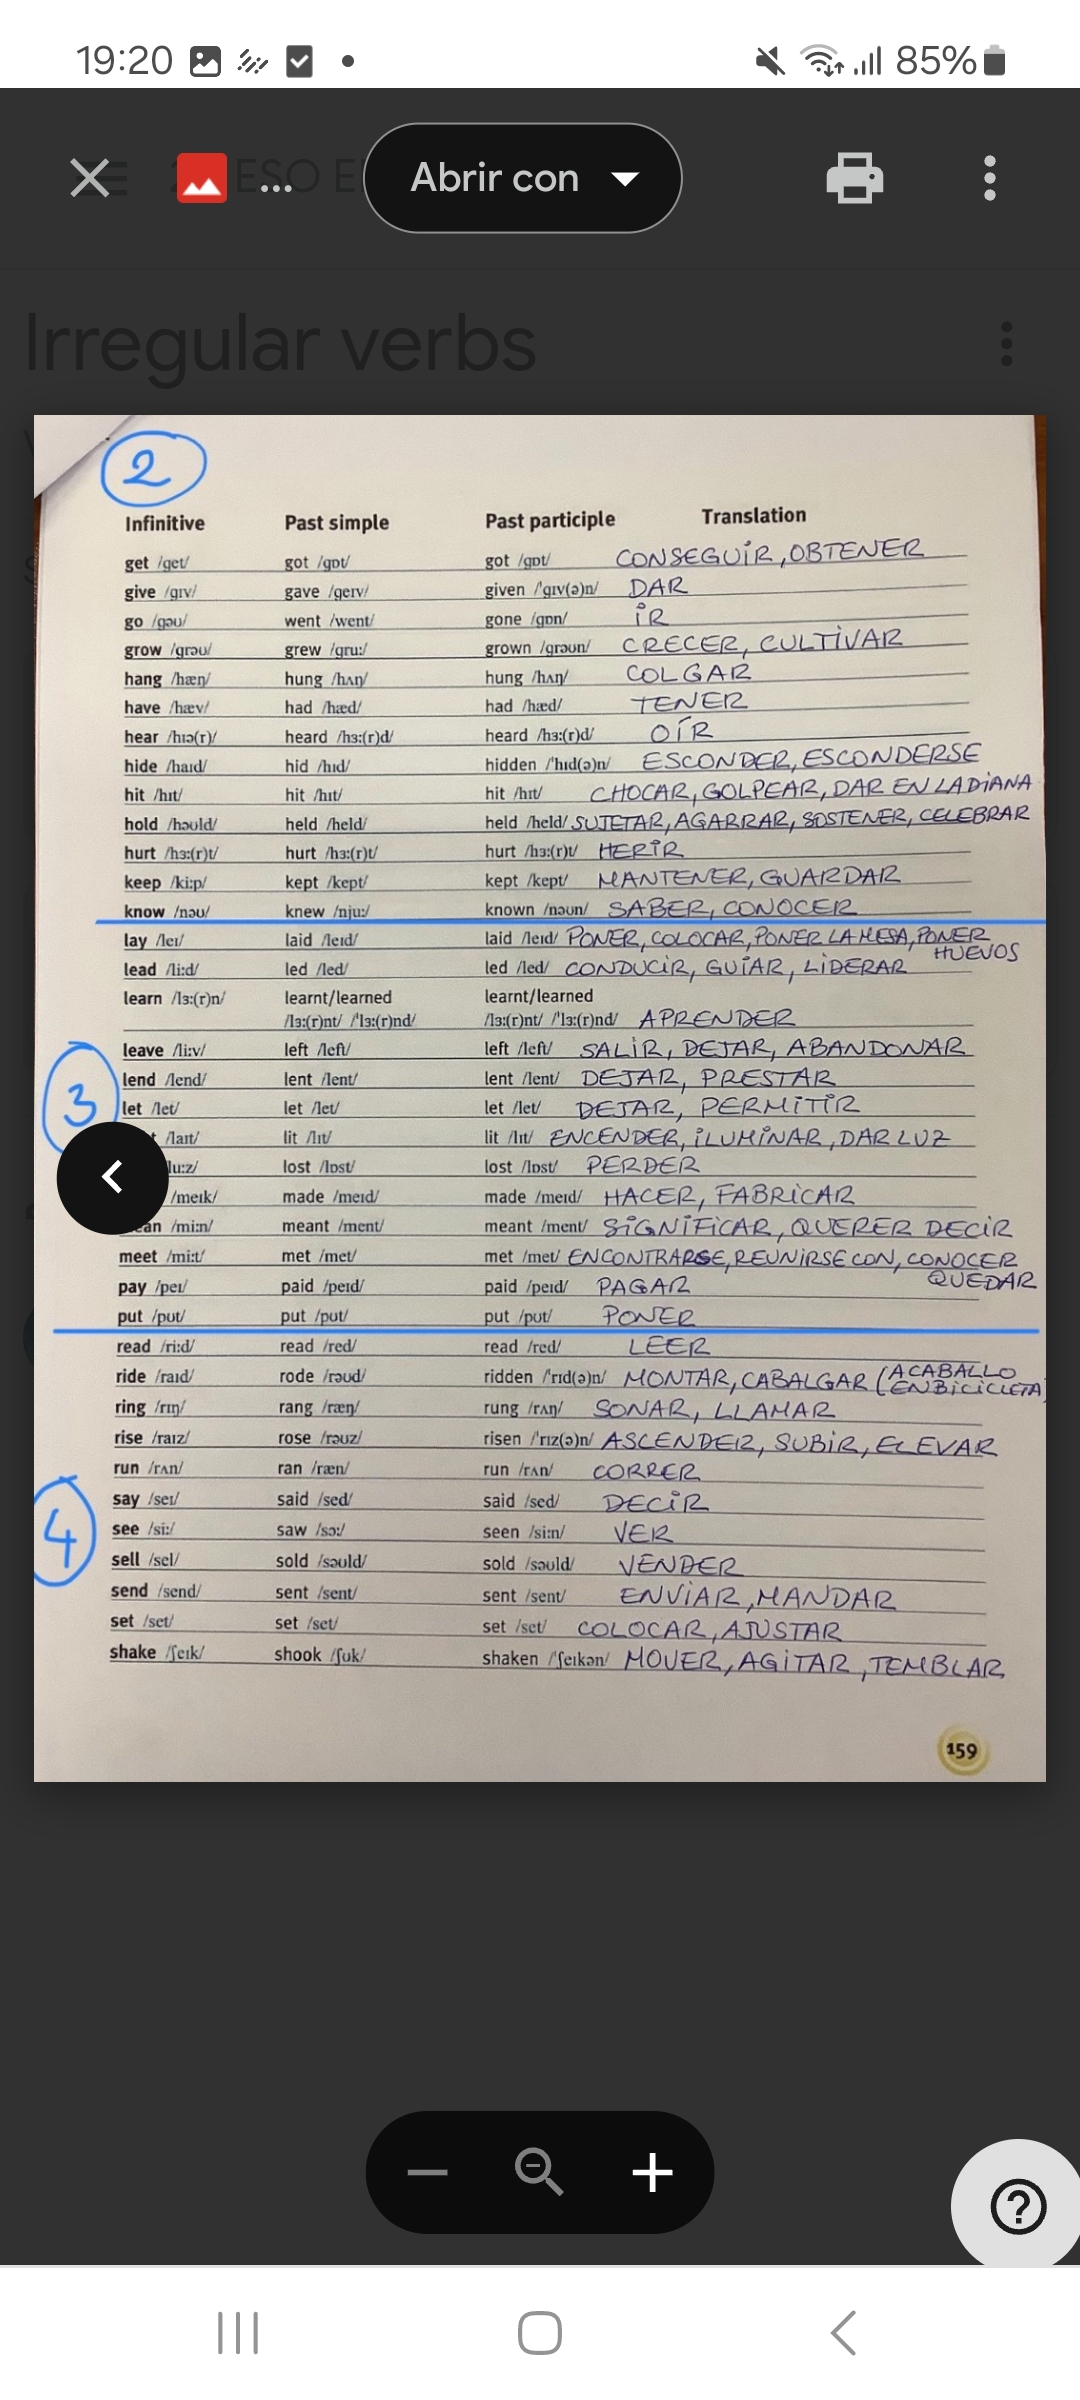 19:20 85%
ESO E
... Abrir con
Irregular verbs
2
Infinitive Past simple Past participle Translation
get /get/ got /gɒt/ got /gɒt/ CONSEGUIR, OBTENER
give /gɪv/ gave /geɪv/ given /'gɪv(ə)n/ DAR
go /gəʊ/ went /went/ gone /gɒn/ IR
grow /grəʊ/ grew /gruː/ grown /grəʊn/ CRECER, CULTIVAR
hang /hæŋ/ hung /hʌŋ/ hung /hʌŋ/ COLGAR
have /hæv/ had /hæd/ had /hæd/ TENER
hear /hɪə(r)/ heard /hɜː(r)d/ heard /hɜː(r)d/ OÍR
hide /haɪd/ hid /hɪd/ hidden /'hɪd(ə)n/ ESCONDER, ESCONDERSE
hit /hɪt/ hit /hɪt/ hit /hɪt/ CHOCAR, GOLPEAR, DAR EN LA DIANA
hold /həʊld/ held /held/ held /held/ SUJETAR, AGARRAR, SOSTENER, CELEBRAR
hurt /hɜː(r)t/ hurt /hɜː(r)t/ hurt /hɜː(r)t/ HERIR
keep /kiːp/ kept /kept/ kept /kept/ MANTENER, GUARDAR
know /nəʊ/ knew /njuː/ known /nəʊn/ SABER, CONOCER
lay /leɪ/ laid /leɪd/ laid /leɪd/ PONER, COLOCAR, PONER LA MESA, PONER
HUEVOS
lead /liːd/ led /led/ led /led/ CONDUCIR, GUIAR, LIDERAR
learn /lɜː(r)n/ learnt/learned learnt/learned
/lɜː(r)nt/ /'lɜː(r)nd/ /lɜː(r)nt/ /'lɜː(r)nd/ APRENDER
leave /liːv/ left /left/ left /left/ SALIR, DEJAR, ABANDONAR
3
lend /lend/ lent /lent/ lent /lent/ DEJAR, PRESTAR
let /let/ let /let/ let /let/ DEJAR, PERMITIR
t /laɪt/ lit /lɪt/ lit /lɪt/ ENCENDER, ILUMINAR, DAR LUZ
luːz/ lost /lɒst/ lost /lɒst/ PERDER
/meɪk/ made /meɪd/ made /meɪd/ HACER, FABRICAR
an /miːn/ meant /ment/ meant /ment/ SIGNIFICAR, QUERER DECIR
meet /miːt/ met /met/ met /met/ ENCONTRARSE, REUNIRSE CON, CONOCER
QUEDAR
pay /peɪ/ paid /peɪd/ paid /peɪd/ PAGAR
put /pʊt/ put /pʊt/ put /pʊt/ PONER
read /riːd/ read /red/ read /red/ LEER
ride /raɪd/ rode /rəʊd/ ridden /'rɪd(ə)n/ MONTAR, CABALGAR (A CABALLO
EN BICICLETA)
ring /rɪŋ/ rang /ræŋ/ rung /rʌŋ/ SONAR, LLAMAR
rise /raɪz/ rose /rəʊz/ risen /'rɪz(ə)n/ ASCENDER, SUBIR, ELEVAR
run /rʌn/ ran /ræn/ run /rʌn/ CORRER
4
say /seɪ/ said /sed/ said /sed/ DECIR
see /siː/ saw /sɔː/ seen /siːn/ VER
sell /sel/ sold /səʊld/ sold /səʊld/ VENDER
send /send/ sent /sent/ sent /sent/ ENVIAR, MANDAR
set /set/ set /set/ set /set/ COLOCAR, AJUSTAR
shake /ʃeɪk/ shook /ʃʊk/ shaken /'ʃeɪkən/ MOVER, AGITAR, TEMBLAR
159